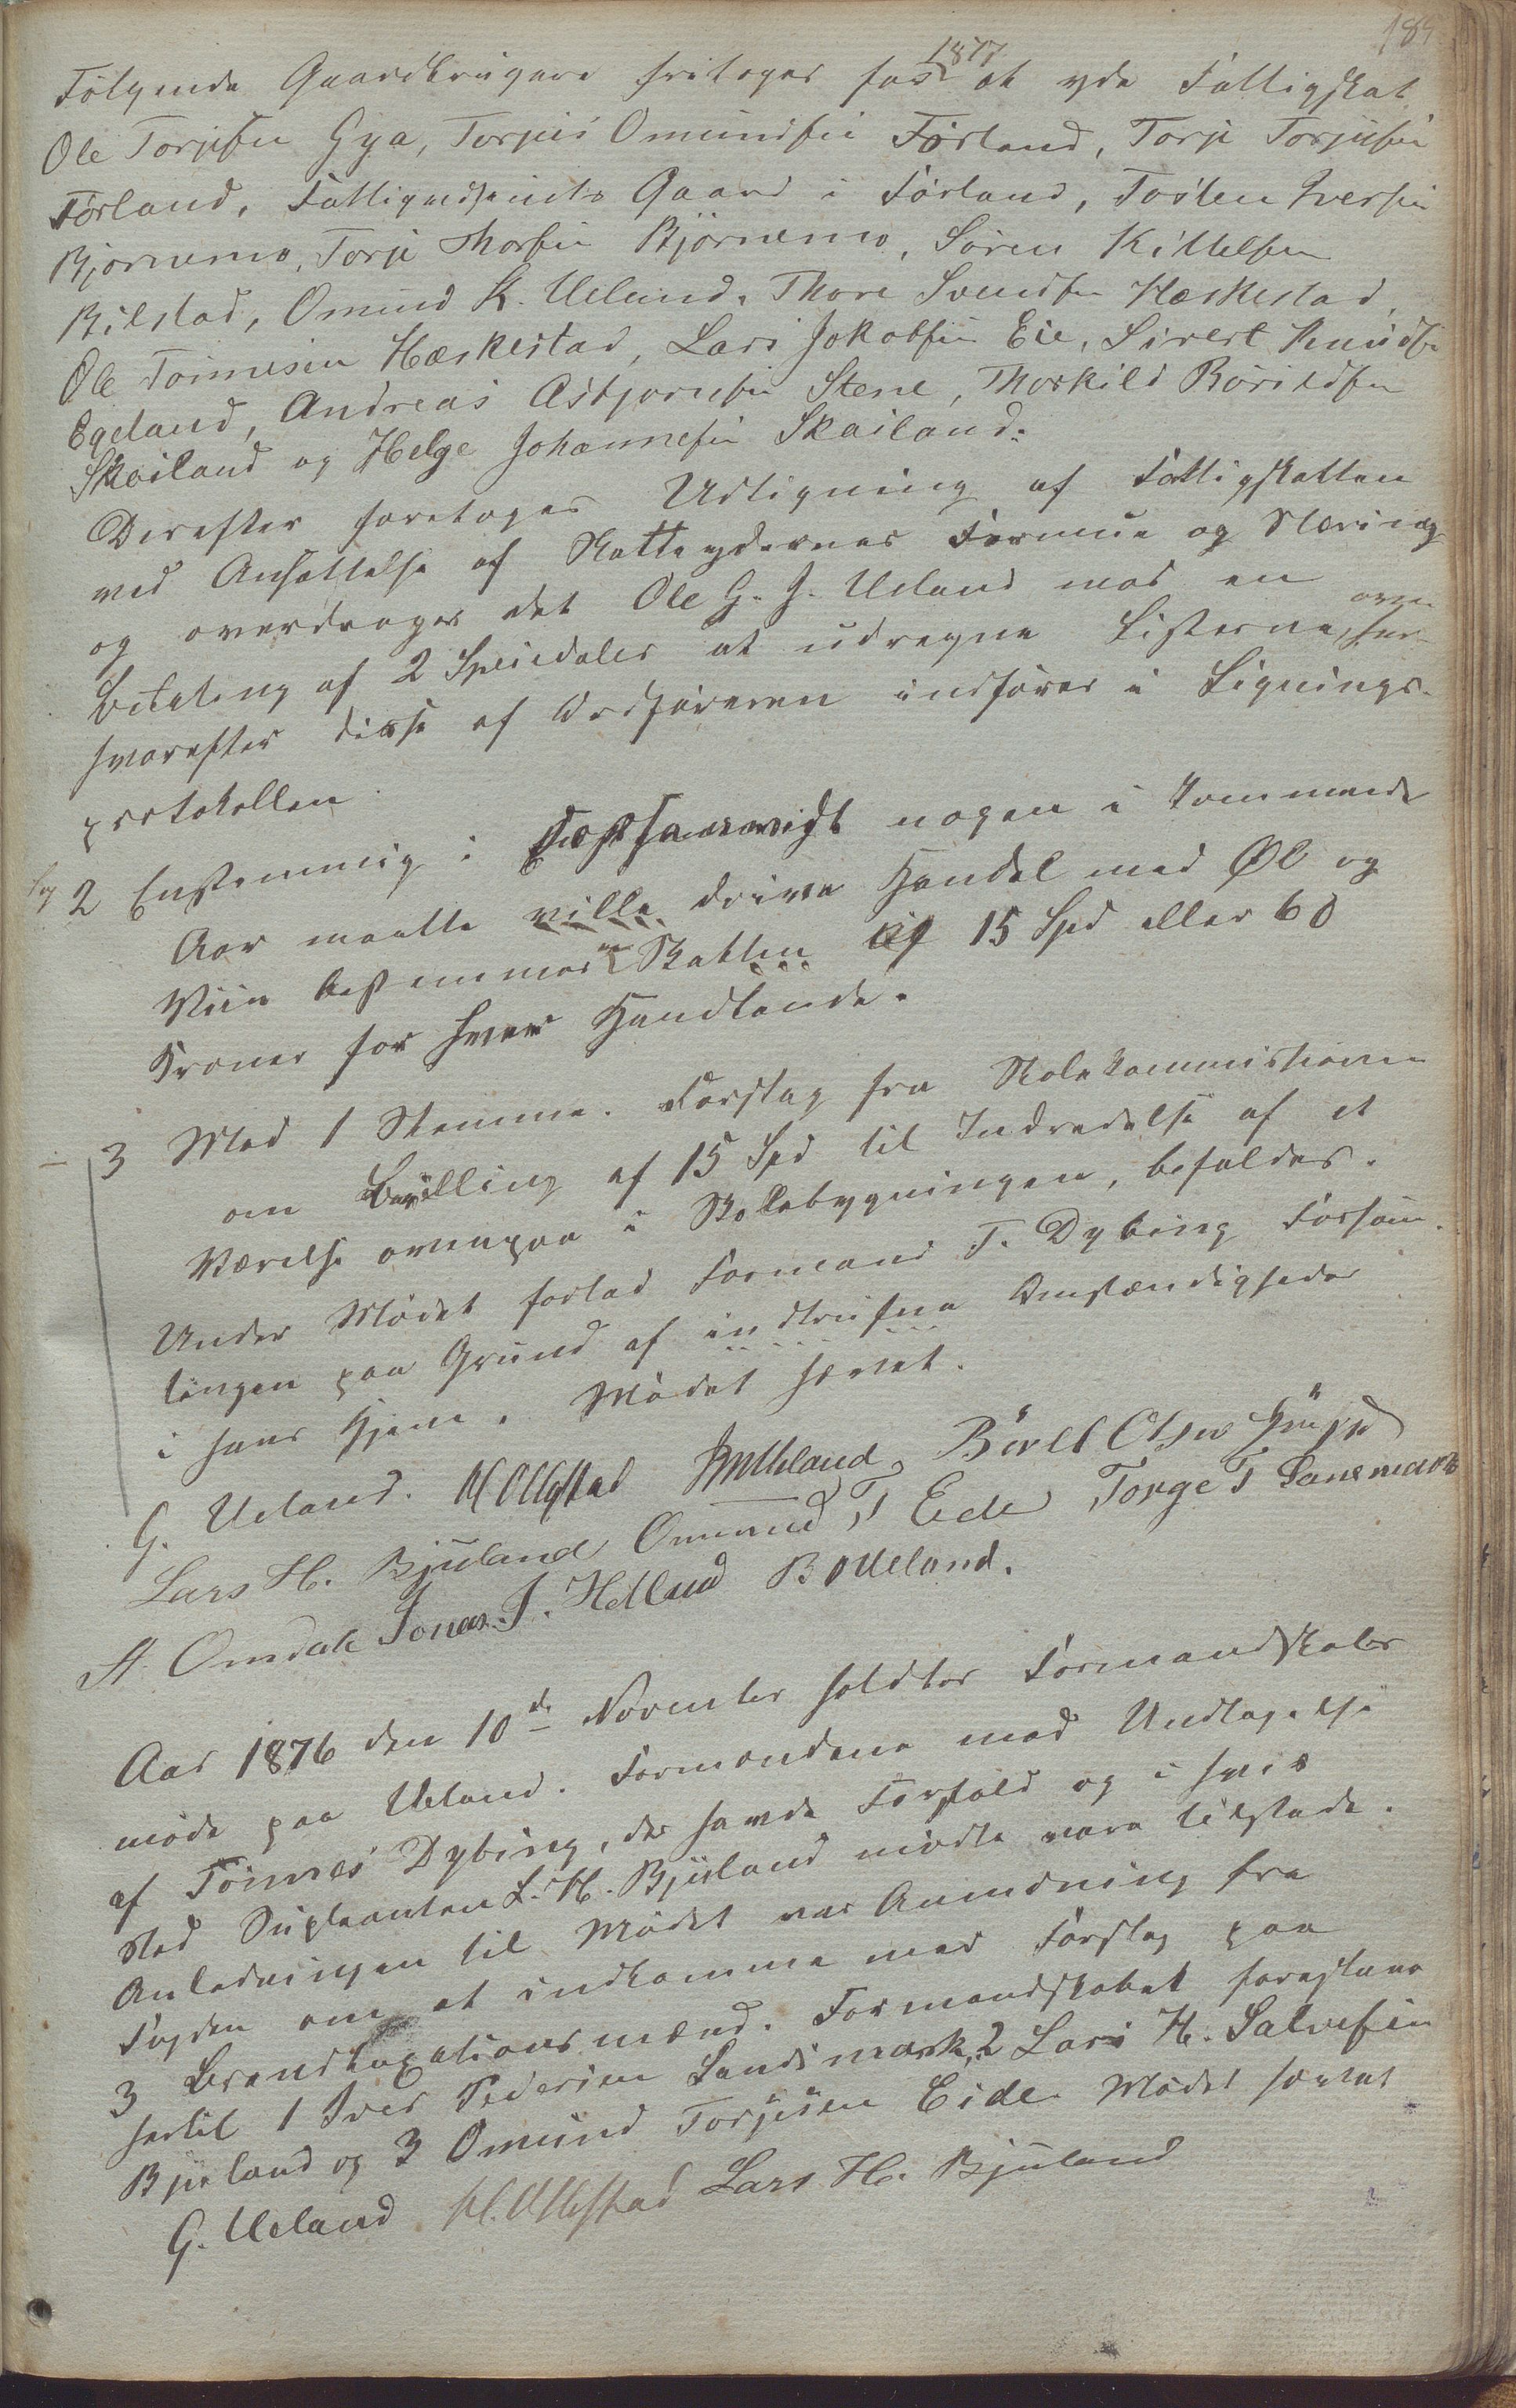 189
Følgende Gaardbrugere fritoges for 1877 at yde Fattigskat
Ole Torjesen Gya, Torjus Omundsen Førland, Torje Torjusen
Førland, Fattigvæsenets Gaard i Førland, Tosten Iversen
Bjørnemo, Torje Thorsen Bjørnemo, Søren Kittelsen
Bilstad, Omund K. Ueland, Thore Svendsen Hæskestad,
Ole Tønnesen Hæskestad, Lars Jakobsen Eie, Sivert Knudsen
Egeland, Andreas Asbjørnsen Stene, Thorkild Børildsen
Skailand og Helge Johannesen Skailand.
Derefter foretoges Udligning af Fattigskatten
ved Ansættelse af Skatteydernes Formue og Næring
og overdroges det Ole G. J. Ueland mod en
Betaling af 2 Speciedaler at udregne Listerne, over
hvorefter disse af Ordføreren indføres i Lignings-
protokollen.
Sag 2 Enstemmig: nogen i kommende
Aar maatte ville drive Handel med Øl og
Viin bestemmes en Skatten af 15 Spd eller 60
Kroner for hver Handlende.
3 Mod 1 Stemme. Forslag fra Skolekommissionen
om Bevilling af 15 Spd til Indredelse af et
Værelse ovenpaa i Skolebygningen, bifaldes.
Under Mødet forlod Formand T. Dybing Forsam-
lingen paa Grund af indtrufne Omstændigheder
i hans Hjem. Mødet hævet.
G. Ueland. M Ollestad Ueland, Børel Olsen
Lars H. Bjuland Ommund T Eide Torge T Sanemark
A. Omdal Jonas J. Hetland B Ueland.
Aar 1876 den 10de November holdtes Formandskabs
møde paa Ueland. Formændene med Undtagelse
af Tønnes Dybing, der havde Forfald og i hvis
Sted Supleanten L. H. Bjuland mødte vare tilstede.
Anledningen til Mødet var Anmodning fra
Fogden om at indkomme med Forslag paa
3 Brandtaxationsmænd. Formandskabet foreslaar
hertil 1 Iver Pedersen Sandsmark, 2 Lars H. Salvesen
Bjuland og 3 Omund Torjesen Eide. Mødet hævet
G. Ueland M. Ollestad Lars H. Bjuland